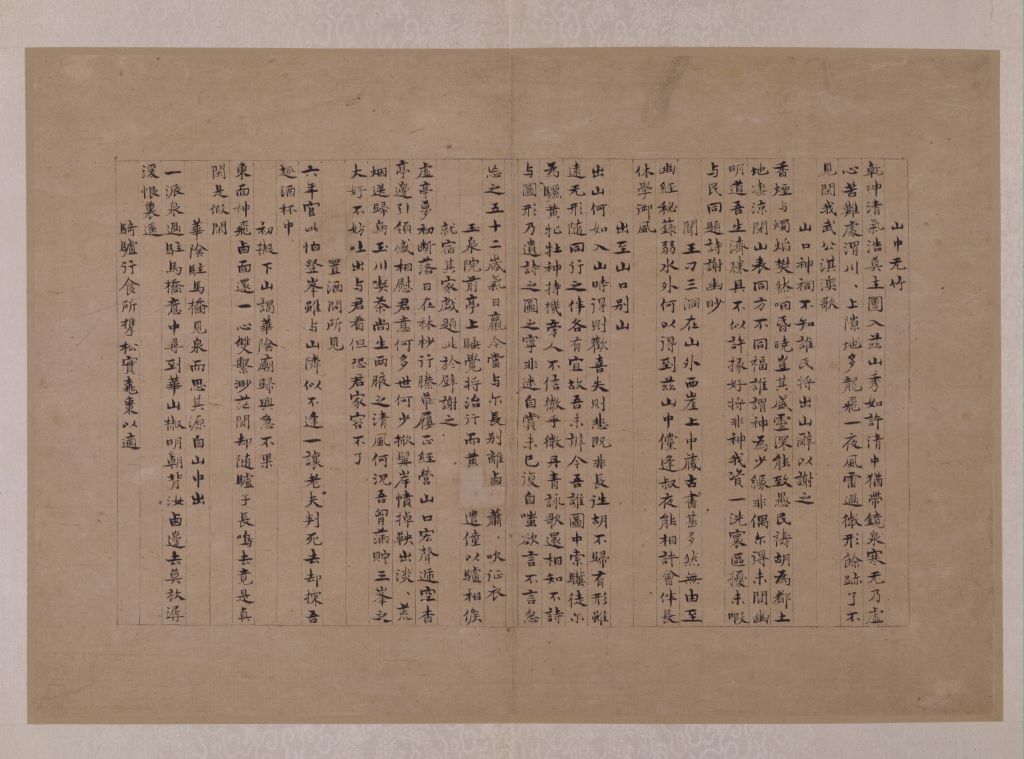 山中无竹
乾坤清氣浩莫主圍入茲山秀如許清中猶帶鏡泉寒无乃虛
心苦難處渭川、上隙地多龍飛一夜風雷過微形餘跡了不
見閟我武公淇澳歌
山口神祠不知誰氏將出山辭以謝之
香煙与燭焰樊林咽昏曉豈其盛靈深能致愚民禱胡為都土
地淒涼閉山表同方不同福誰謂神為少緣非偶尔得未問幽
明道吾生濟勝具不似許掾好將非神我資一洗寰區擾未暇
与民同題詩謝幽眇
聞王刁三洞在山外西崖上中藏古書甚多然無由至
幽經秘籙弱水外何以得到茲山中儻逢叔夜能相許會伴長
休學御風
出至山口別山
出山何如入山時得則歡喜失則悲既非長往胡不歸有形雖
遠无形隨同行之伴各有宜故吾未辨今吾誰圖中索驥徒尔
為驪黃牝牡神持機旁人不信微乎微丹青詠歌還相知不詩
与圖形乃遺詩之圖之寧非迷自賞未已復自嗤欲言不言忽
忘之五十二歲氣日羸今當与尔長別離鹵蕭、吹征衣
玉泉院前亭上睡覺將治行而黃 遣僮以驢相候
就宿其家戲題此於壁謝之
虛亭夢初斷落日在林杪行縢草屨正經營山口宏聲遞空杳
亭邊引領感相慰君意何多世何少掀髯岸幘掉鞅出淡、荒
烟送歸鳥玉川喫茶尚生兩腋之清風何況吾胷滿貯三峯之
大好不妨吐出与君看但恐君家容不了
置酒問所見
六年官此怕登峯雖与山隣似不逢一讓老夫判死去却探吾
極酒杯中
初擬下山謁華陰廟歸興急不果
東面神飛鹵面還一心雙繫渺茫間却隨驢子長鳴去竟是真
閒是假閒
華陰駐馬橋見泉而思其源自山中出
一派泉過駐馬橋意中尋到華山椒明朝背汝鹵邊去莫放潺
湲恨裏遥
騎驢行食所携松實龜棗以適